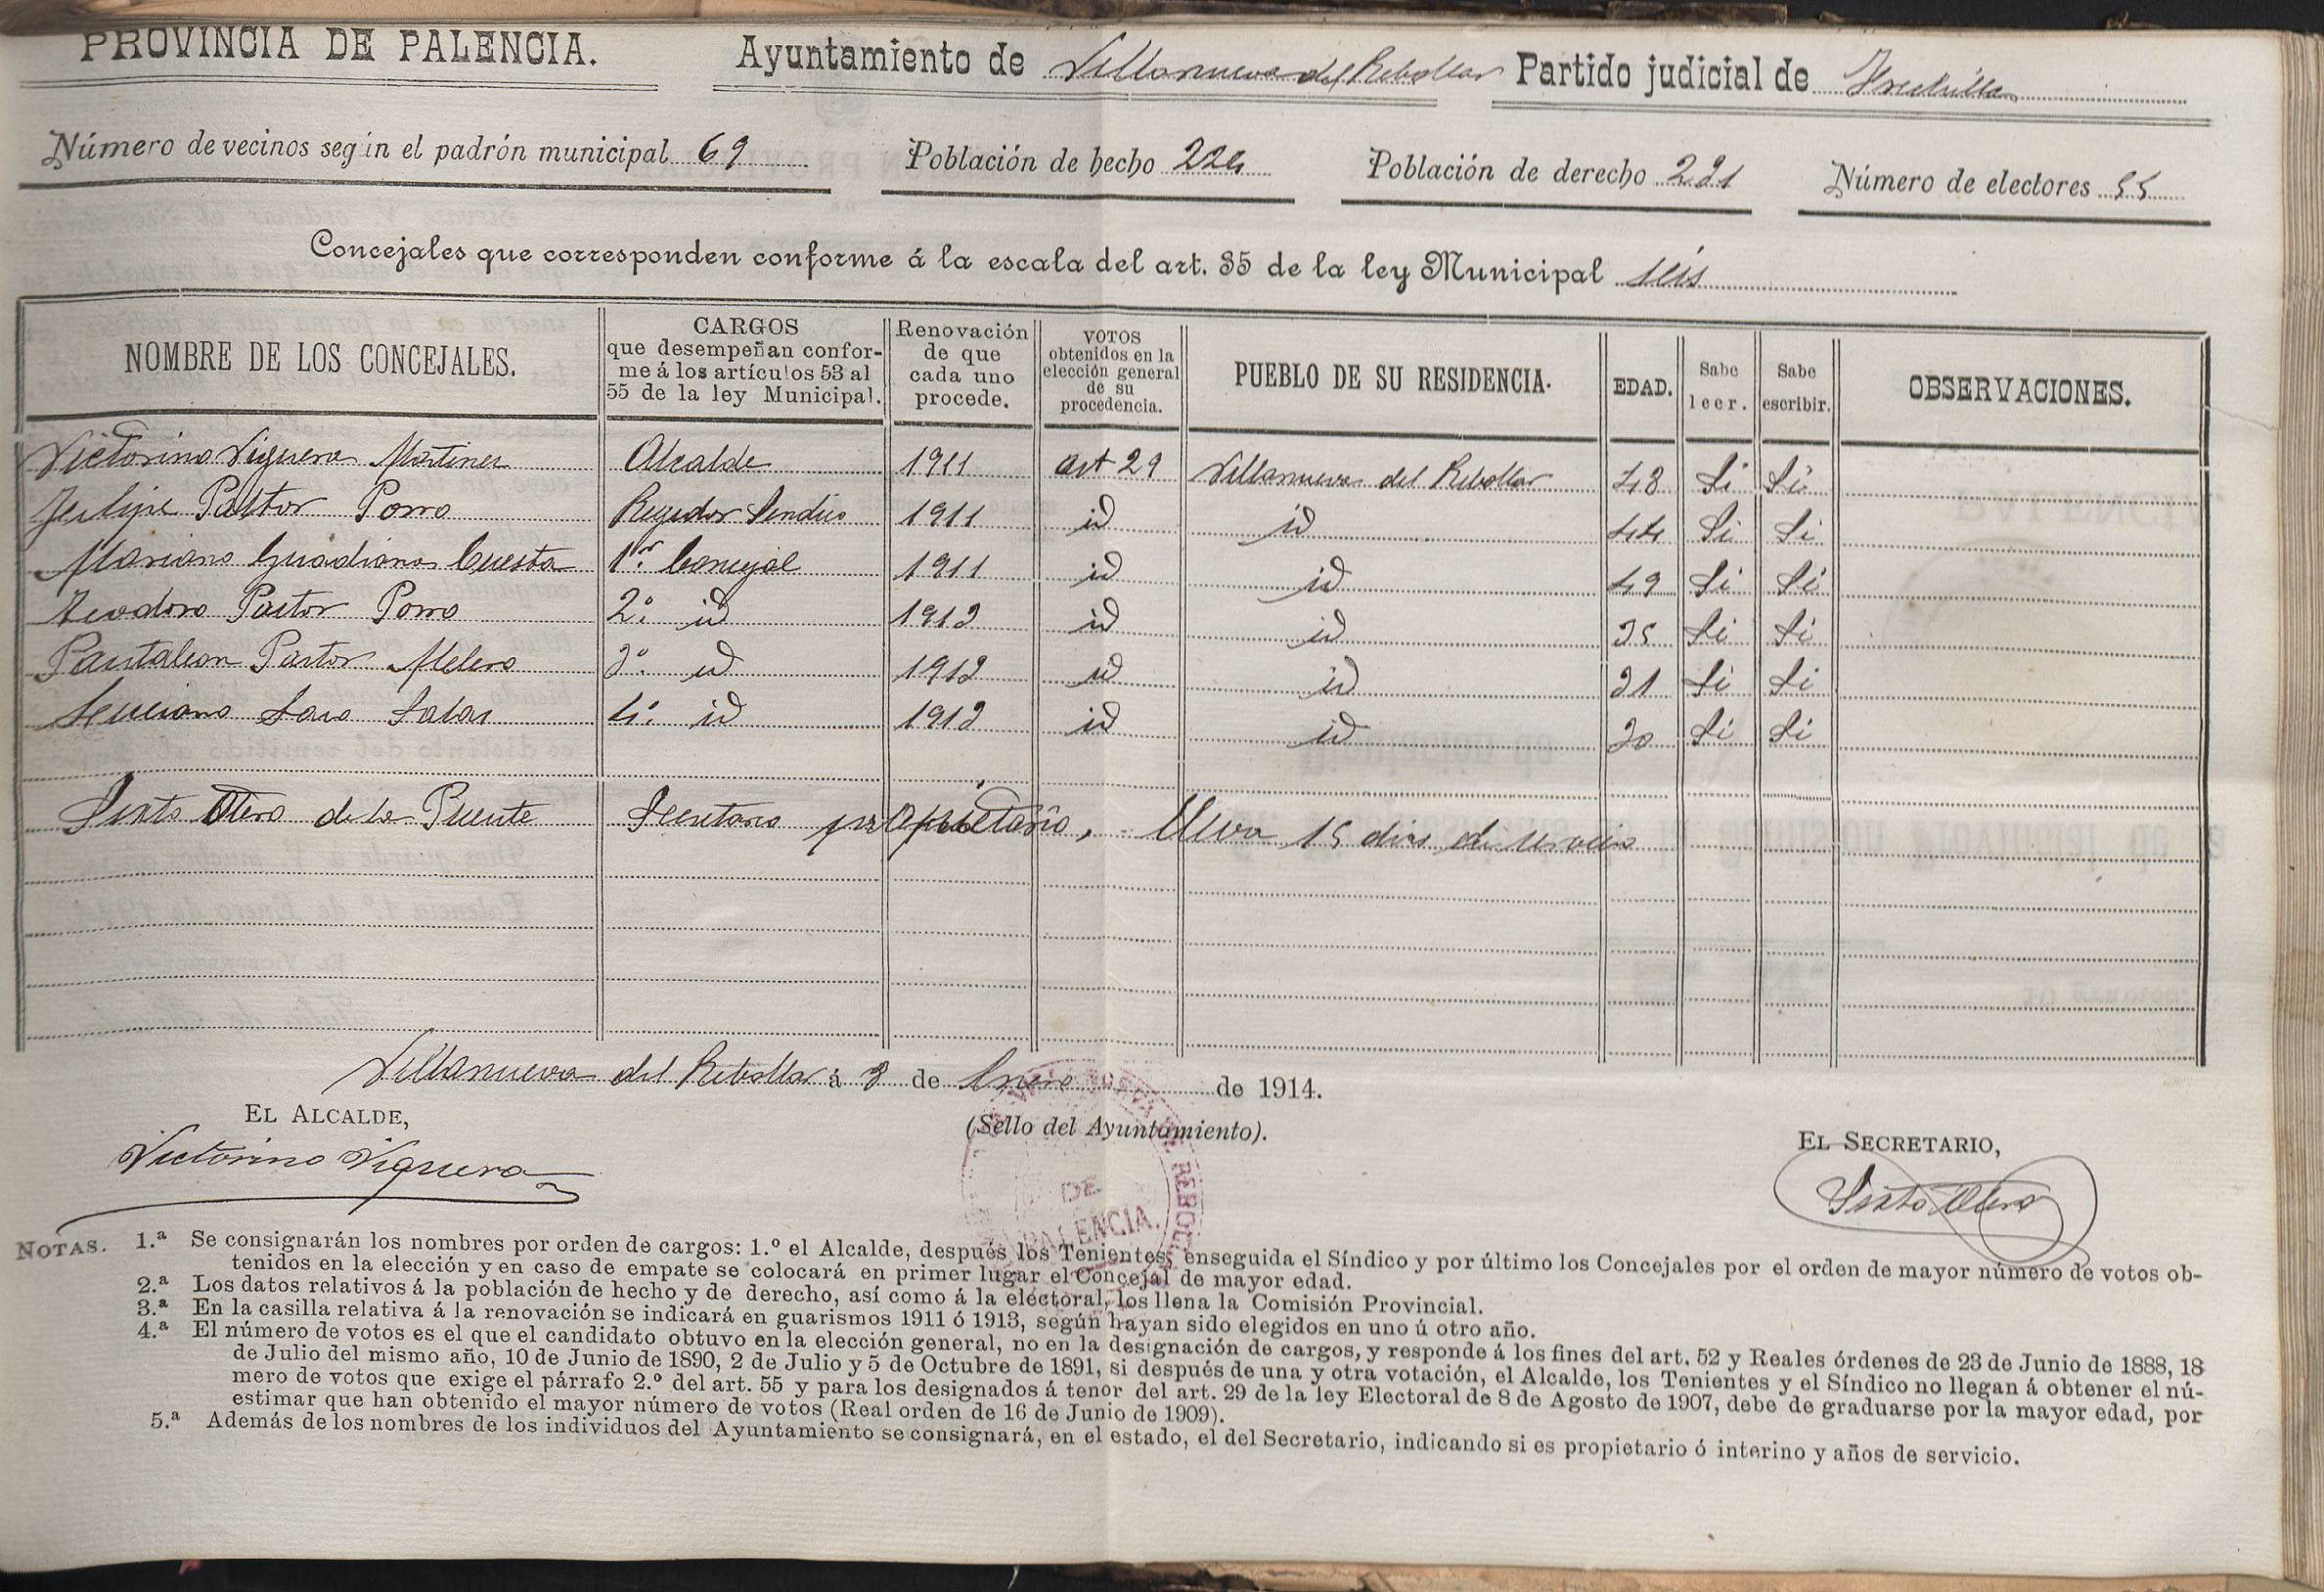 PROVINCIA DE PALENCIA. Ayuntamiento de Villanueva del Rebollar Partido judicial de Frechilla
Número de vecinos según el padrón municipal 69 Población de hecho 224 Población de derecho 231 Número de electores 55
Concejales que corresponden conforme á la escala del art. 35 de la ley Municipal seis
NOMBRE DE LOS CONCEJALES. CARGOS que desempeñan conforme á los artículos 53 al 55 de la ley Municipal. Renovación de que cada uno procede. VOTOS obtenidos en la elección general de su procedencia. PUEBLO DE SU RESIDENCIA. EDAD. Sabe leer. Sabe escribir. OBSERVACIONES.
Victorino Viguera Martinez Alcalde 1911 Art 29 Villanueva del Rebollar 48 Si Si
Felipe Pastor Porro Regidor Sindico 1911 id id 44 Si Si
Mariano Guadiana Cuesta 1er Concejal 1911 id id 49 Si Si
Teodoro Pastor Porro 2º id 1913 id id 35 Si Si
Pantaleon Pastor Melero 3º id 1913 id id 31 Si Si
Luciano Salas 4º id 1913 id id 30 Si Si
Sixto Otero de la Puente Secretario propietario, lleva 15 dias de servicio
Villanueva del Rebollar á 3 de Enero de 1914.
EL ALCALDE,
(Sello del Ayuntamiento).
EL SECRETARIO,
Victorino Viguera
Sixto Otero
DE
PALENCIA.
NOTAS. 1.ª Se consignarán los nombres por orden de cargos: 1.º el Alcalde, después los Tenientes, enseguida el Síndico y por último los Concejales por el orden de mayor número de votos ob-
tenidos en la elección y en caso de empate se colocará en primer lugar el Concejal de mayor edad.
2.ª Los datos relativos á la población de hecho y de derecho, así como á la electoral, los llena la Comisión Provincial.
3.ª En la casilla relativa á la renovación se indicará en guarismos 1911 ó 1913, según hayan sido elegidos en uno ú otro año.
4.ª El número de votos es el que el candidato obtuvo en la elección general, no en la designación de cargos, y responde á los fines del art. 52 y Reales órdenes de 23 de Junio de 1888, 18
de Julio del mismo año, 10 de Junio de 1890, 2 de Julio y 5 de Octubre de 1891, si después de una y otra votación, el Alcalde, los Tenientes y el Síndico no llegan á obtener el nú-
mero de votos que exige el párrafo 2.º del art. 55 y para los designados á tenor del art. 29 de la ley Electoral de 8 de Agosto de 1907, debe de graduarse por la mayor edad, por
estimar que han obtenido el mayor número de votos (Real orden de 16 de Junio de 1909).
5.ª Además de los nombres de los individuos del Ayuntamiento se consignará, en el estado, el del Secretario, indicando si es propietario ó interino y años de servicio.